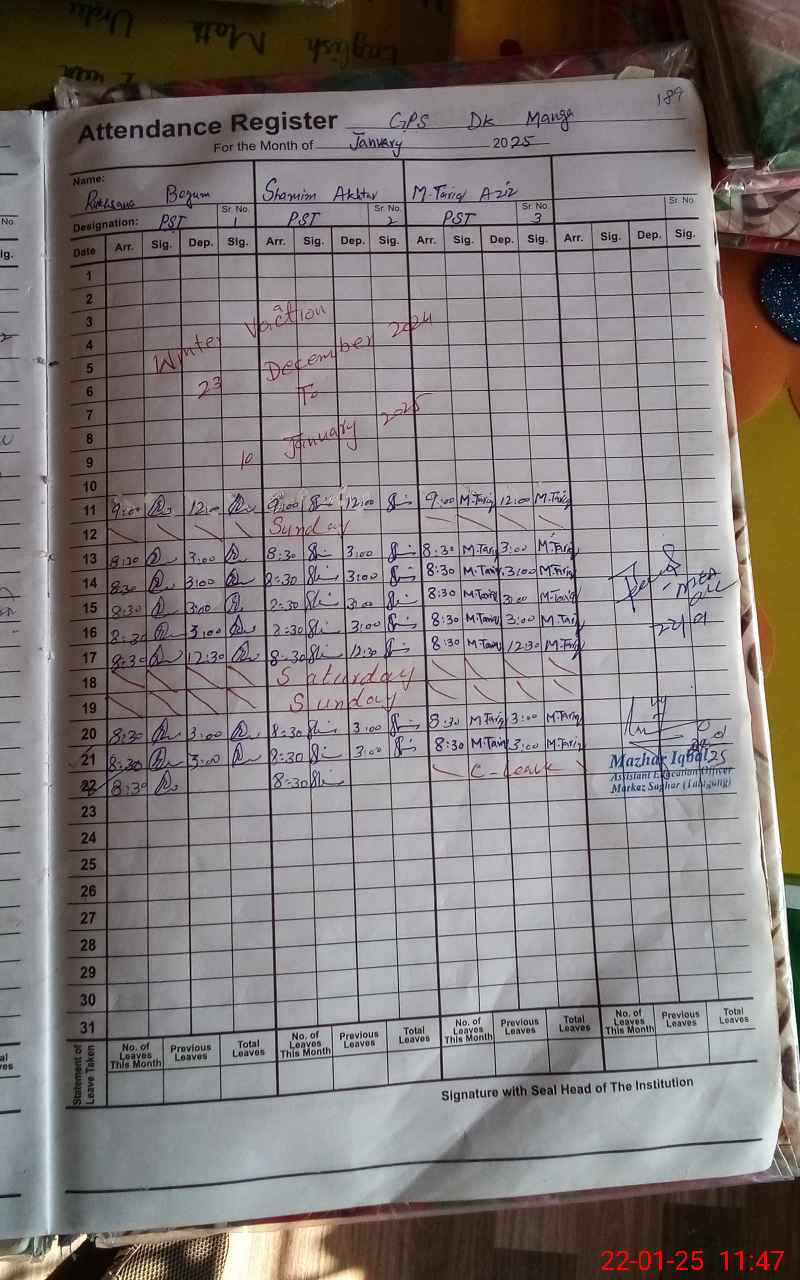 English Math Urdu
189
Attendance Register GPS Dk Manga
For the Month of January 2025
Name:
Rukhsana Begum Shamim Akhtar M.Tariq Aziz
Sr. No. Sr. No. Sr. No. Sr. No.
Designation: PST 1 PST 2 PST 3
Date Arr. Sig. Dep. Sig. Arr. Sig. Dep. Sig. Arr. Sig. Dep. Sig. Arr. Sig. Dep. Sig.
1
2
3 Winter Vacation
4
5 23 December 2024
6 To
7
8 10 January 2025
9
10
11 9:00 12:00 9:00 12:00 9:00 M.Tariq 12:00 M.Tariq
12 Sunday
13 8:30 3:00 8:30 3:00 8:30 M.Tariq 3:00 M.Tariq
14 8:30 3:00 8:30 3:00 8:30 M.Tariq 3:00 M.Tariq
15 8:30 3:00 8:30 3:00 8:30 M.Tariq 3:00 M.Tariq
16 8:30 3:00 8:30 3:00 8:30 M.Tariq 3:00 M.Tariq
22/01
17 8:30 12:30 8:30 12:30 8:30 M.Tariq 12:30 M.Tariq
18 Saturday
19 Sunday
20 8:30 3:00 8:30 3:00 8:30 M.Tariq 3:00 M.Tariq
21 8:30 3:00 8:30 3:00 8:30 M.Tariq 3:00 M.Tariq
22 8:30 8:30 C-Leave
Mazhar Iqbal
Assistant Education Officer
Markaz Saghar (Talagang)
23
24
25
26
27
28
29
30
31
Statement of Leave Taken
No. of Leaves This Month Previous Leaves Total Leaves No. of Leaves This Month Previous Leaves Total Leaves No. of Leaves This Month Previous Leaves Total Leaves No. of Leaves This Month Previous Leaves Total Leaves
Signature with Seal Head of The Institution
22-01-25 11:47